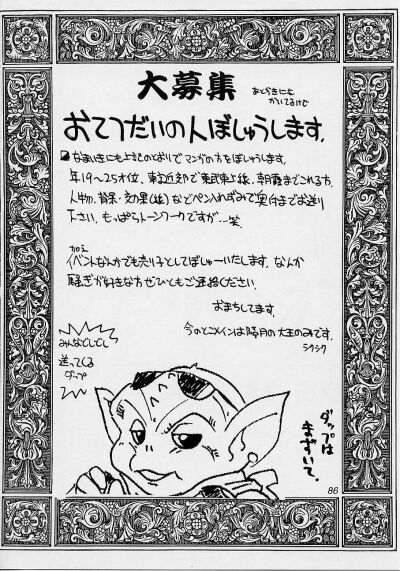 大募集
あとがきにも
かいてるけど
おてつだいの人ぼしゅうします。
なまいきにも上記のとおりでマンガの方をぼしゅうします。
年19〜25才位、東京近郊で東武東上線、朝霞までこれる方。
人物、背景・効果(線)などペン入れずみで奥付までお送り
下さい。もっぱらトーンワークですが…笑
加え
イベントなんかでも売り子としてぼしゅーいたします。なんか
騒ぎが好きな方ぜひともご連絡ください。
おまちしてます。
今のとこメインは睦月の大王のみです。
シクシク
みんなどしどし
送ってくる
ダップ
ダップは
まずいて。
86